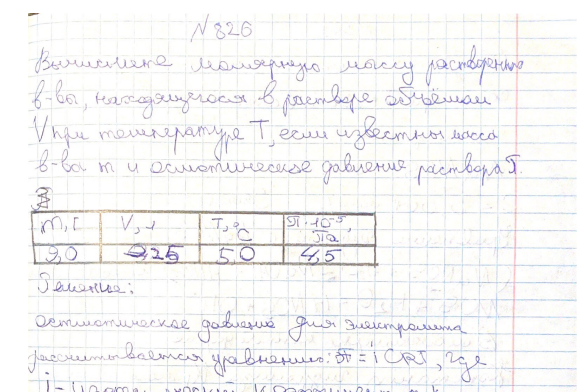 №826
Вычислите молярную массу растворенно
в-вы, находящегося в растворе объёмом
V при температуре T, если известны масса
в-ва m и осмотическое давление раствора π.
m, г V, л T, °C π·10⁻⁵, Па
9,0 0,25 5,0 4,5
Решение:
осмотическое давление для электролита
рассчитывается уравнению: π = i CRT, где
i -